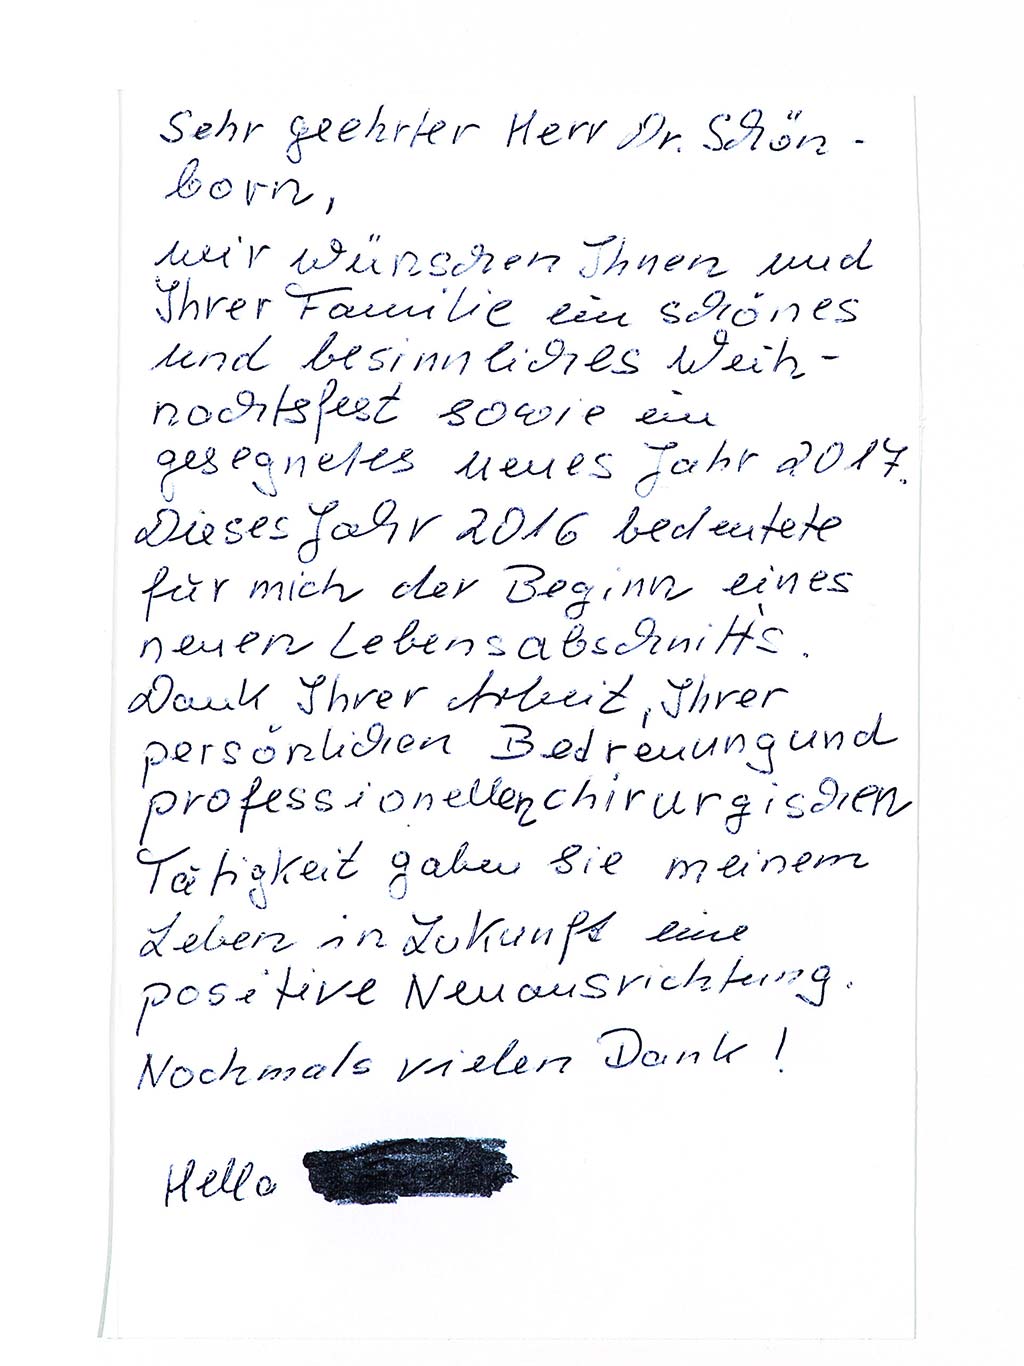 Sehr geehrter Herr Dr. Schön-
born,
wir wünschen Ihnen und
Ihrer Familie ein schönes
und besinnliches Weih-
nachtsfest sowie ein
gesegnetes neues Jahr 2017.
Dieses Jahr 2016 bedeutete
für mich der Beginn eines
neuen Lebensabschnitt's.
Dank Ihrer Arbeit, Ihrer
persönlichen Betreuung und
professionellen chirurgischen
Tätigkeit gaben Sie meinem
Leben in Zukunft eine
positive Neuausrichtung.
Nochmals vielen Dank!
Hella